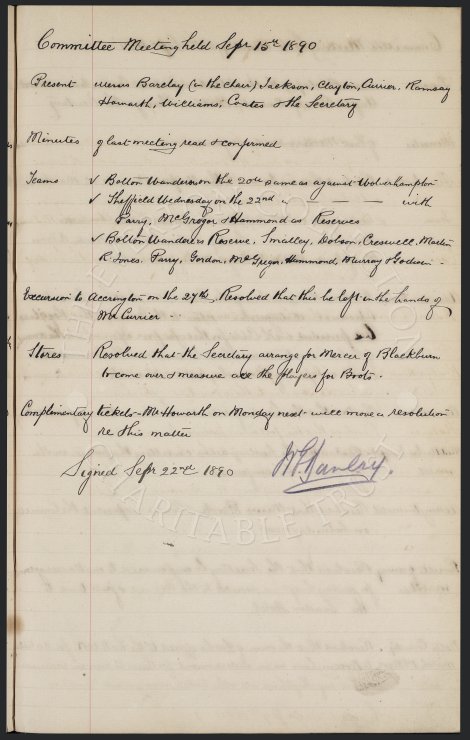 Committee Meeting held Sepr 15th 1890
Present were Messrs Barclay (in the chair) Jackson, Clayton, Currier, Ramsay
Howarth, Williams, Coates & the Secretary
Minutes of last meeting read & confirmed
Teams √ Bolton Wanderers on the 20th same as against Wolverhampton
√ Sheffield Wednesday on the 22nd " — — — with
Parry, McGregor & Hammond as Reserves
√ Bolton Wanderers Reserve, Smalley, Dobson, Creswell, Martin
R. Jones. Parry, Gordon, McGregor, Hammond, Murray & Godwin
Excursion to Accrington on the 27th. Resolved that this be left in the hands of
Mr Currier
Stores Resolved that the Secretary arrange for Mercer of Blackburn
to come over & measure all the players for Boots.
Complimentary tickets - Mr Howarth on Monday next will move a resolution
re this matter
Signed Sepr 22nd 1890
THE CHARITABLE TRUST